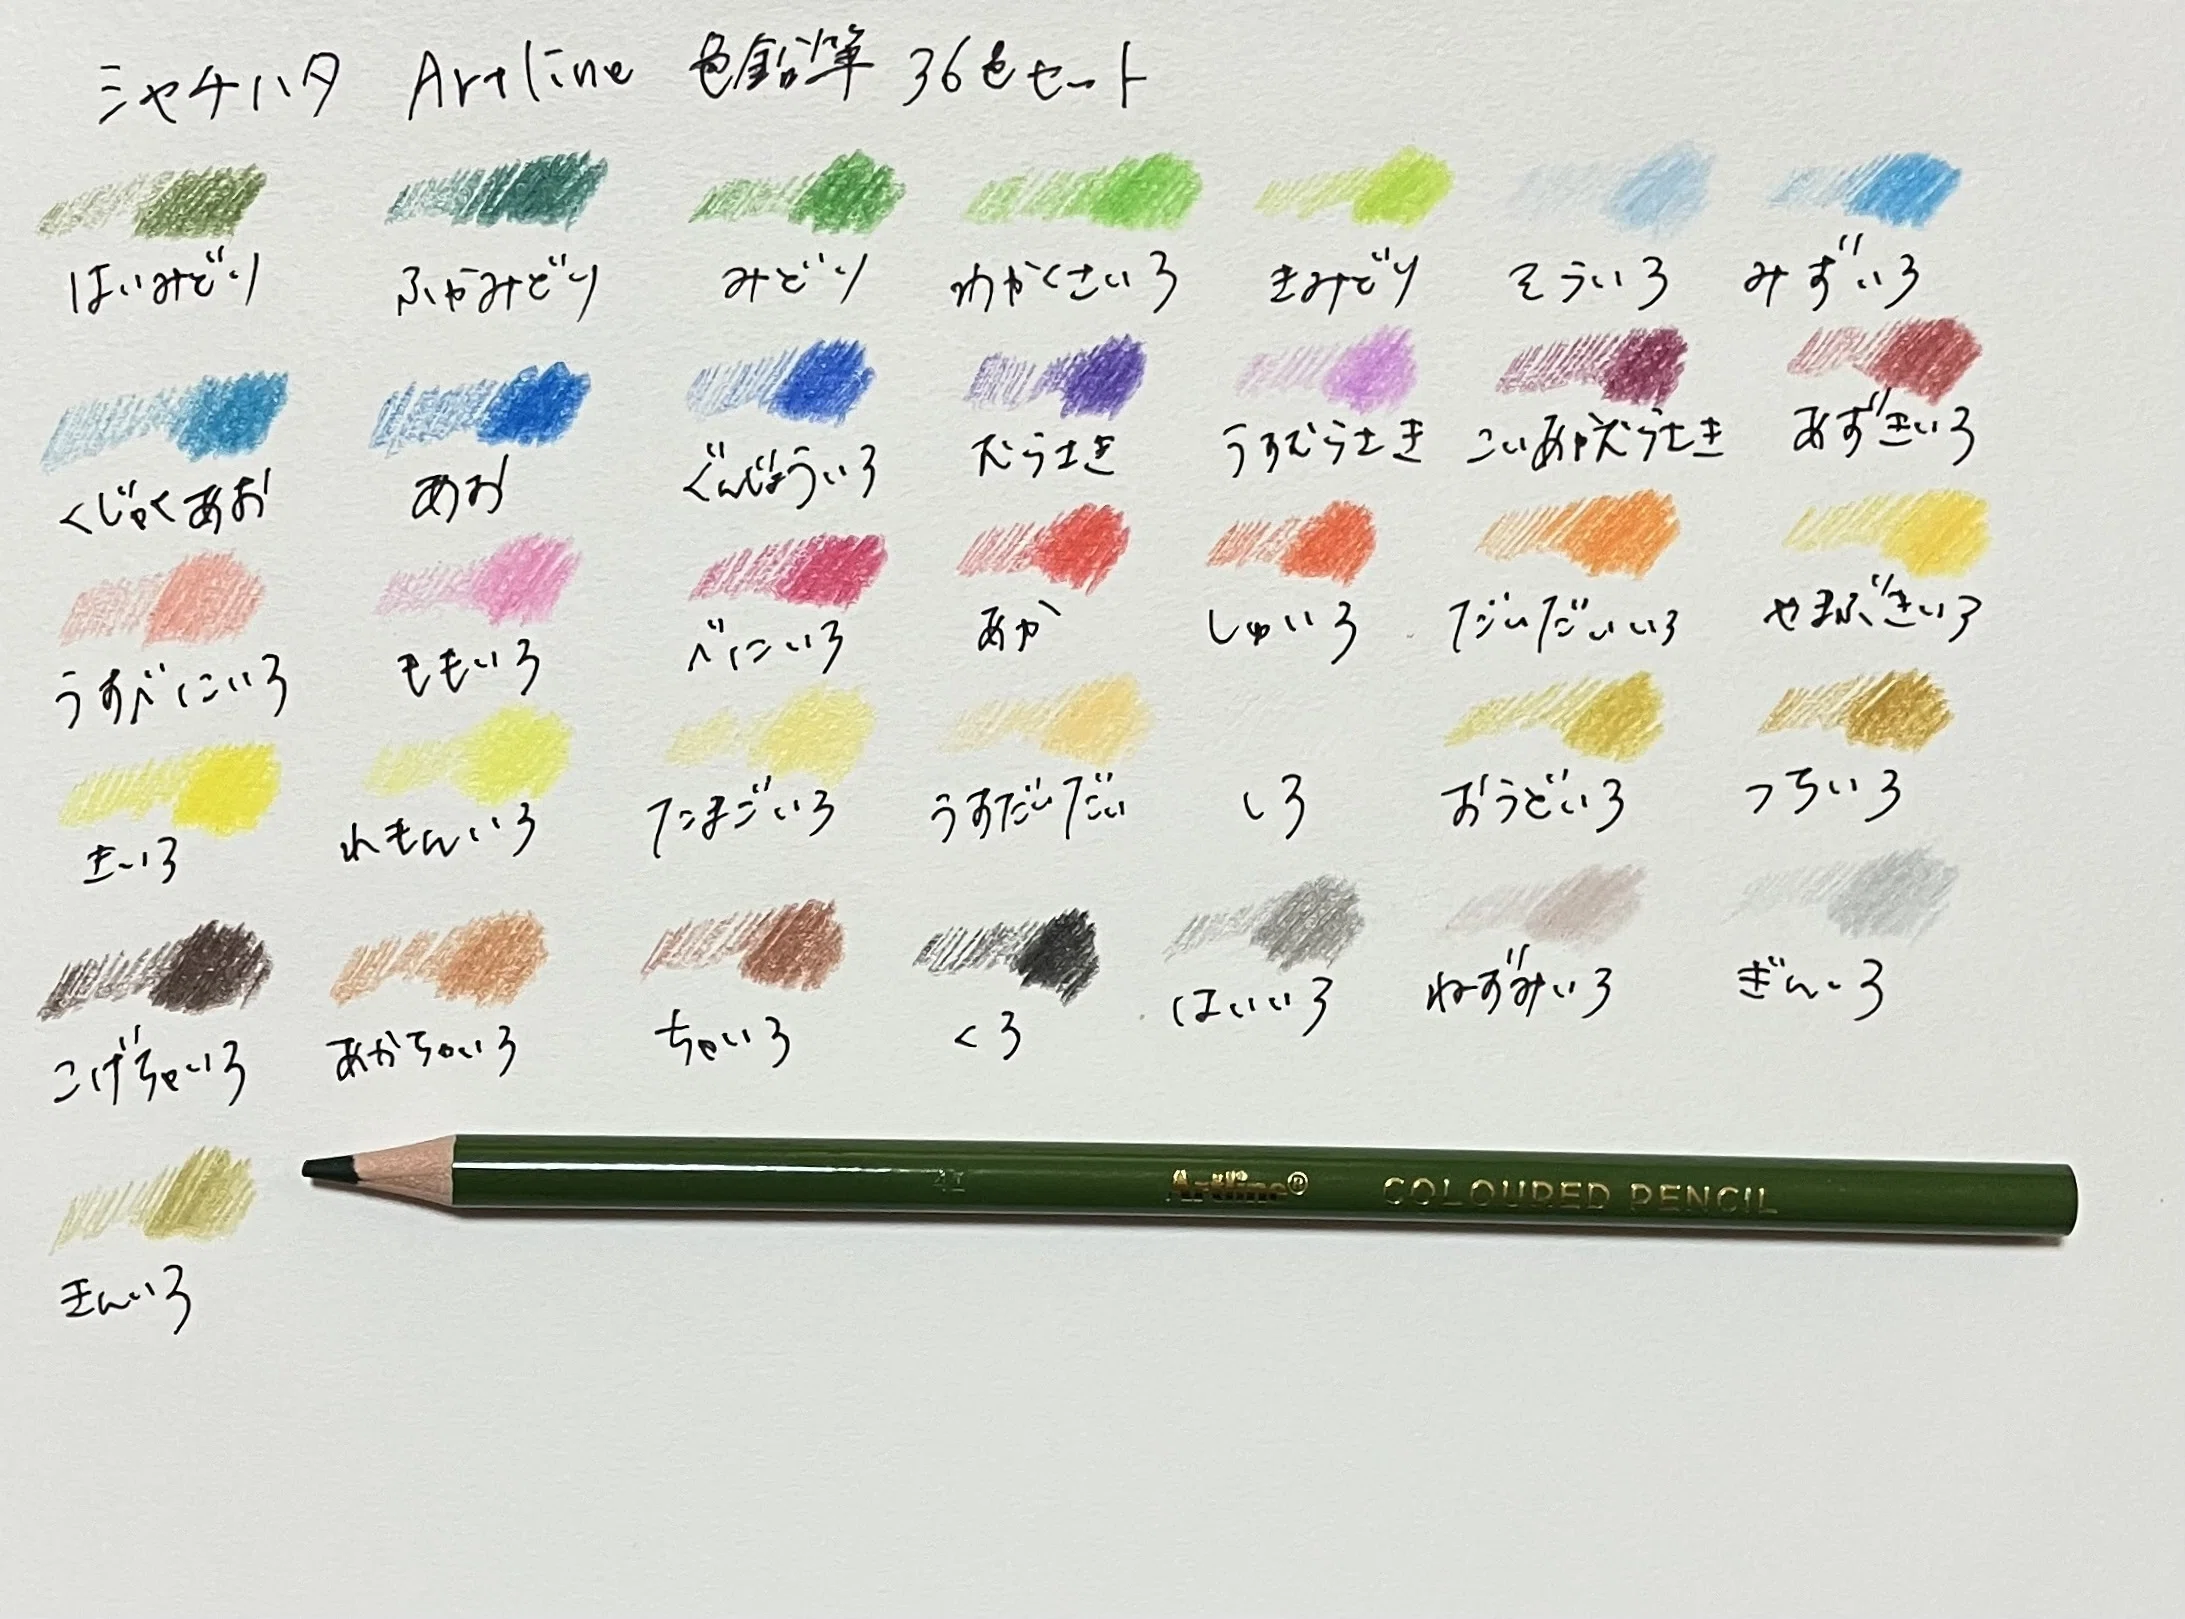 シヤチハタ Artline 色鉛筆 36色セット
はいみどり ふかみどり みどり わかくさいろ きみどり そらいろ みずいろ
くじゃくあお あお ぐんじょういろ むらさき うすむらさき こいあかむらさき あずきいろ
うすべにいろ ももいろ べにいろ あか しゅいろ だいだいいろ やまぶきいろ
きいろ れもんいろ たまごいろ うすだいだい しろ おうどいろ つちいろ
こげちゃいろ あかちゃいろ ちゃいろ くろ はいいろ ねずみいろ ぎんいろ
Artline® COLOURED PENCIL
きんいろ